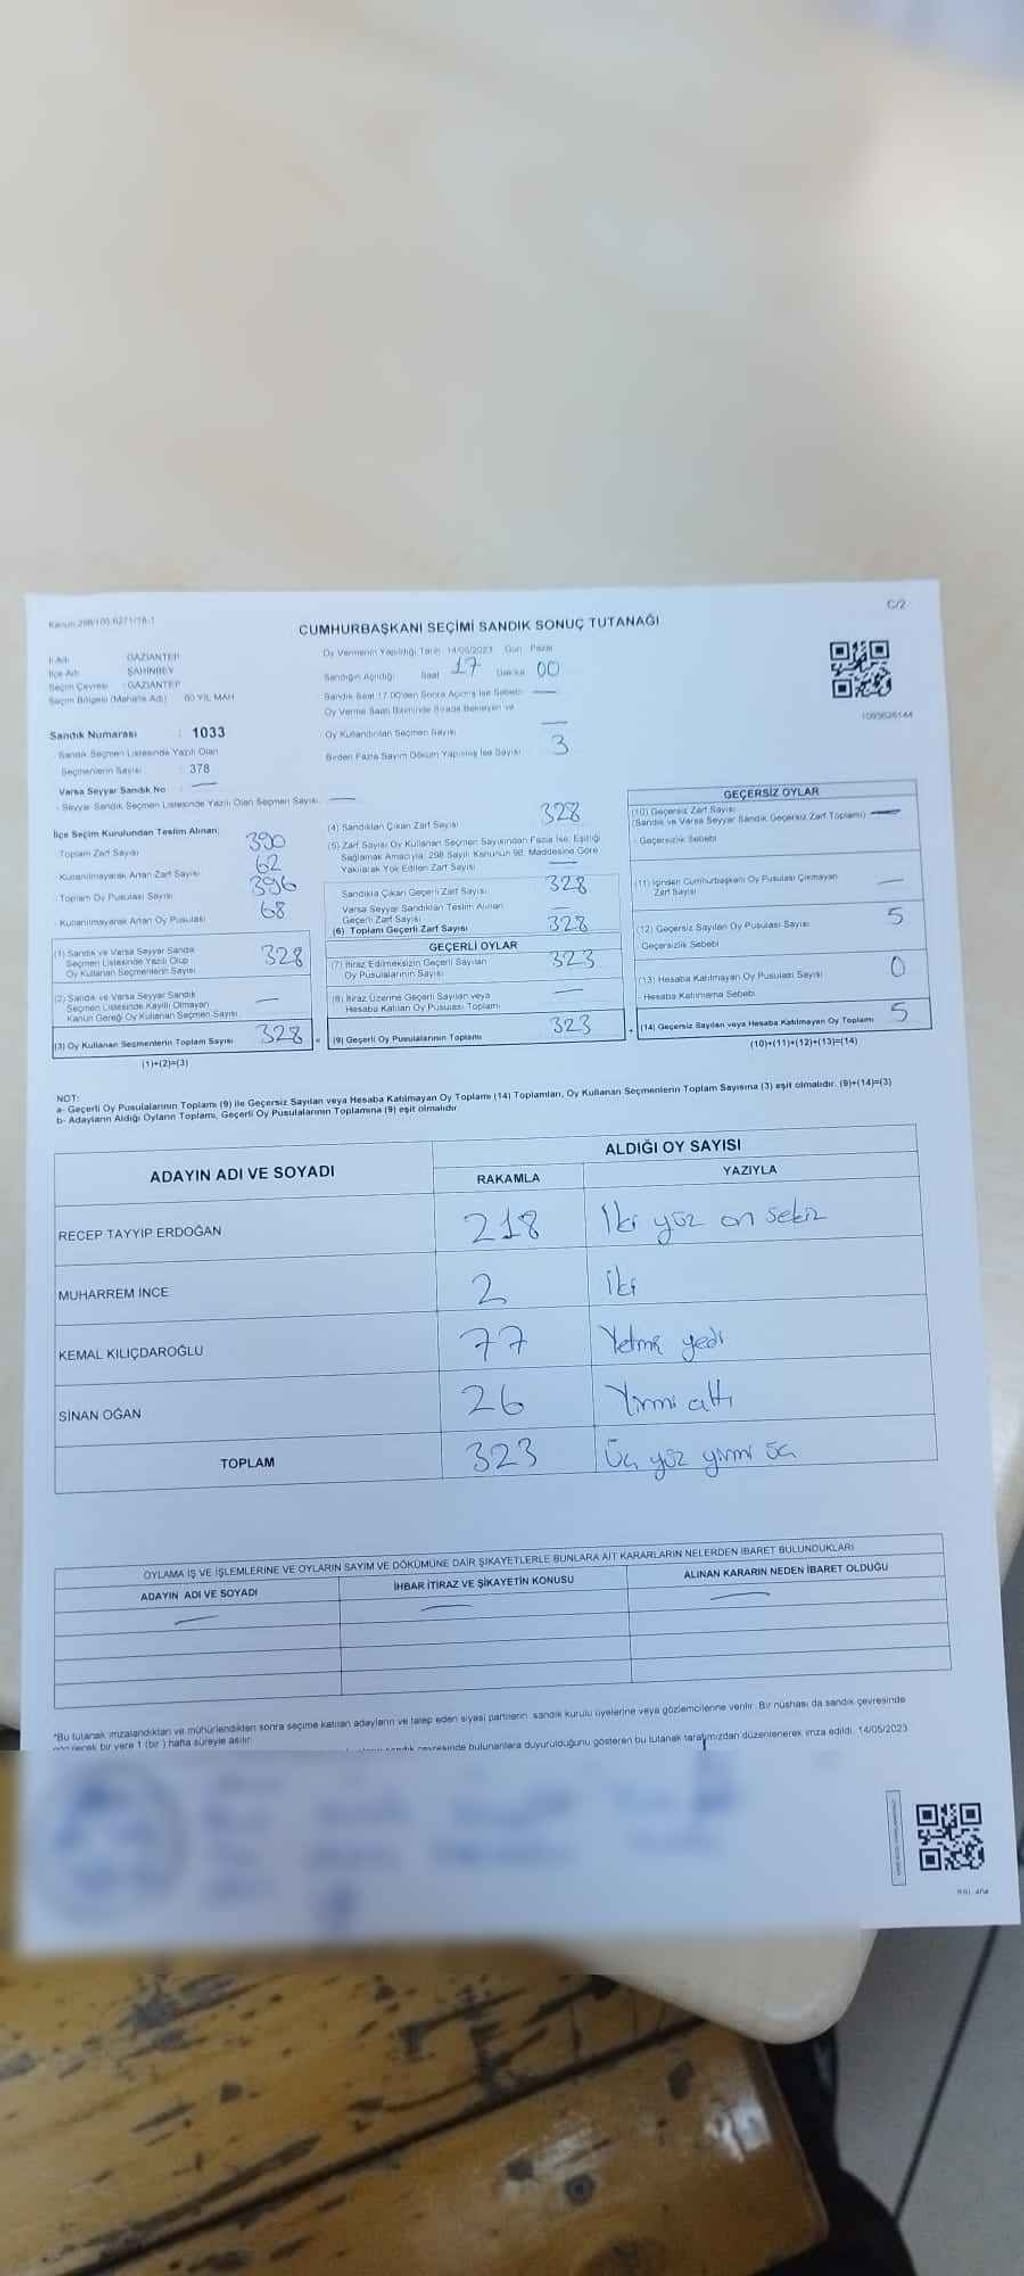 C/2
CUMHURBAŞKANI SEÇİMİ SANDIK SONUÇ TUTANAĞI
İl Adı : GAZİANTEP
İlçe Adı : ŞAHİNBEY
Seçim Çevresi : GAZİANTEP
Seçim Bölgesi (Mahalle Adı) : 60 YIL MAH
Oy Vermenin Yapıldığı Tarih 14/05/2023 Gün Pazar
Sandığın Açıldığı Saat 17 Dakika 00
Sandık Saat 17.00'den Sonra Açılmış İse Sebebi —
Oy Verme Saati Bitiminde Sırada Bekleyen ve
Oy Kullandırılan Seçmen Sayısı —
Birden Fazla Sayım Döküm Yapılmış İse Sayısı 3
Sandık Numarası : 1033
Sandık Seçmen Listesinde Yazılı Olan
Seçmenlerin Sayısı : 378
Varsa Seyyar Sandık No : —
- Seyyar Sandık Seçmen Listesinde Yazılı Olan Seçmen Sayısı —
İlçe Seçim Kurulundan Teslim Alınan;
Toplam Zarf Sayısı 390
- Kullanılmayarak Artan Zarf Sayısı 62
- Toplam Oy Pusulası Sayısı 396
- Kullanılmayarak Artan Oy Pusulası 68
(1) Sandık ve Varsa Seyyar Sandık
Seçmen Listesinde Yazılı Olup
Oy Kullanan Seçmenlerin Sayısı 328
(2) Sandık ve Varsa Seyyar Sandık
Seçmen Listesinde Kayıtlı Olmayan
Kanun Gereği Oy Kullanan Seçmen Sayısı —
(3) Oy Kullanan Seçmenlerin Toplam Sayısı 328
(1)+(2)=(3)
(4) Sandıktan Çıkan Zarf Sayısı 328
(5) Zarf Sayısı Oy Kullanan Seçmen Sayısından Fazla İse, Eşitliği
Sağlamak Amacıyla, 298 Sayılı Kanunun 98. Maddesine Göre
Yakılarak Yok Edilen Zarf Sayısı —
Sandıkta Çıkan Geçerli Zarf Sayısı 328
Varsa Seyyar Sandıktan Teslim Alınan
Geçerli Zarf Sayısı —
(6) Toplam Geçerli Zarf Sayısı 328
GEÇERLİ OYLAR
(7) İtiraz Edilmeksizin Geçerli Sayılan
Oy Pusulalarının Sayısı 323
(8) İtiraz Üzerine Geçerli Sayılan veya
Hesaba Katılan Oy Pusulası Toplamı —
(9) Geçerli Oy Pusulalarının Toplamı 323
GEÇERSİZ OYLAR
(10) Geçersiz Zarf Sayısı
(Sandık ve Varsa Seyyar Sandık Geçersiz Zarf Toplamı) —
Geçersizlik Sebebi
(11) İçinden Cumhurbaşkanı Oy Pusulası Çıkmayan
Zarf Sayısı —
(12) Geçersiz Sayılan Oy Pusulası Sayısı 5
Geçersizlik Sebebi
(13) Hesaba Katılmayan Oy Pusulası Sayısı 0
Hesaba Katılmama Sebebi
(14) Geçersiz Sayılan veya Hesaba Katılmayan Oy Toplamı 5
(10)+(11)+(12)+(13)=(14)
NOT:
a- Geçerli Oy Pusulalarının Toplamı (9) ile Geçersiz Sayılan veya Hesaba Katılmayan Oy Toplamı (14) Toplamları, Oy Kullanan Seçmenlerin Toplam Sayısına (3) eşit olmalıdır. (9)+(14)=(3)
b- Adayların Aldığı Oyların Toplamı, Geçerli Oy Pusulalarının Toplamına (9) eşit olmalıdır.
ADAYIN ADI VE SOYADI
ALDIĞI OY SAYISI
RAKAMLA YAZIYLA
RECEP TAYYİP ERDOĞAN 218 İki yüz on sekiz
MUHARREM İNCE 2 iki
KEMAL KILIÇDAROĞLU 77 Yetmiş yedi
SİNAN OĞAN 26 Yirmi altı
TOPLAM 323 Üç yüz yirmi üç
OYLAMA İŞ VE İŞLEMLERİNE VE OYLARIN SAYIM VE DÖKÜMÜNE DAİR ŞİKAYETLERLE BUNLARA AİT KARARLARIN NELERDEN İBARET BULUNDUKLARI
ADAYIN ADI VE SOYADI İHBAR İTİRAZ VE ŞİKAYETİN KONUSU ALINAN KARARIN NEDEN İBARET OLDUĞU
— — —
*Bu tutanak imzalandıktan ve mühürlendikten sonra seçime katılan adayların ve talep eden siyasi partilerin, sandık kurulu üyelerine veya gözlemcilerine verilir. Bir nüshası da sandık çevresinde
bir yere 1 (bir) hafta süreyle asılır.
çevresinde bulunanlara duyurulduğunu gösteren bu tutanak tarafımızdan düzenlenerek imza edildi. 14/05/2023